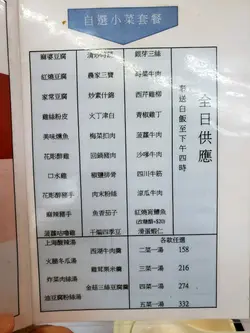 自選小菜套餐
麻婆豆腐
農家三寶
銀芽三絲
紅燒豆腐
時菜牛肉
家常豆腐
炒素什錦
西芹雞柳
雞絲粉皮
火丁津白
青椒雞丁
美味燻魚
梅菜扣肉
菠蘿牛肉
花彫醉雞
回鍋豬肉
沙嗲牛肉
口水雞
椒鹽排骨
四川牛肉
花彫醉豬手
肉末粉絲
涼瓜牛肉
麻辣豬手
魚香茄子
紅燒豆腐
菠蘿咕嚕雞
干煸四季豆
滑蛋蝦仁
全日供應
附送白飯至下午四時
上海酸辣湯
西湖牛肉羹
各款任選
火腿冬瓜湯
雞茸粟米羹
二菜一湯 158
炸菜肉絲湯
三菜一湯 216
油豆腐粉絲湯
四菜一湯 274
五菜一湯 332